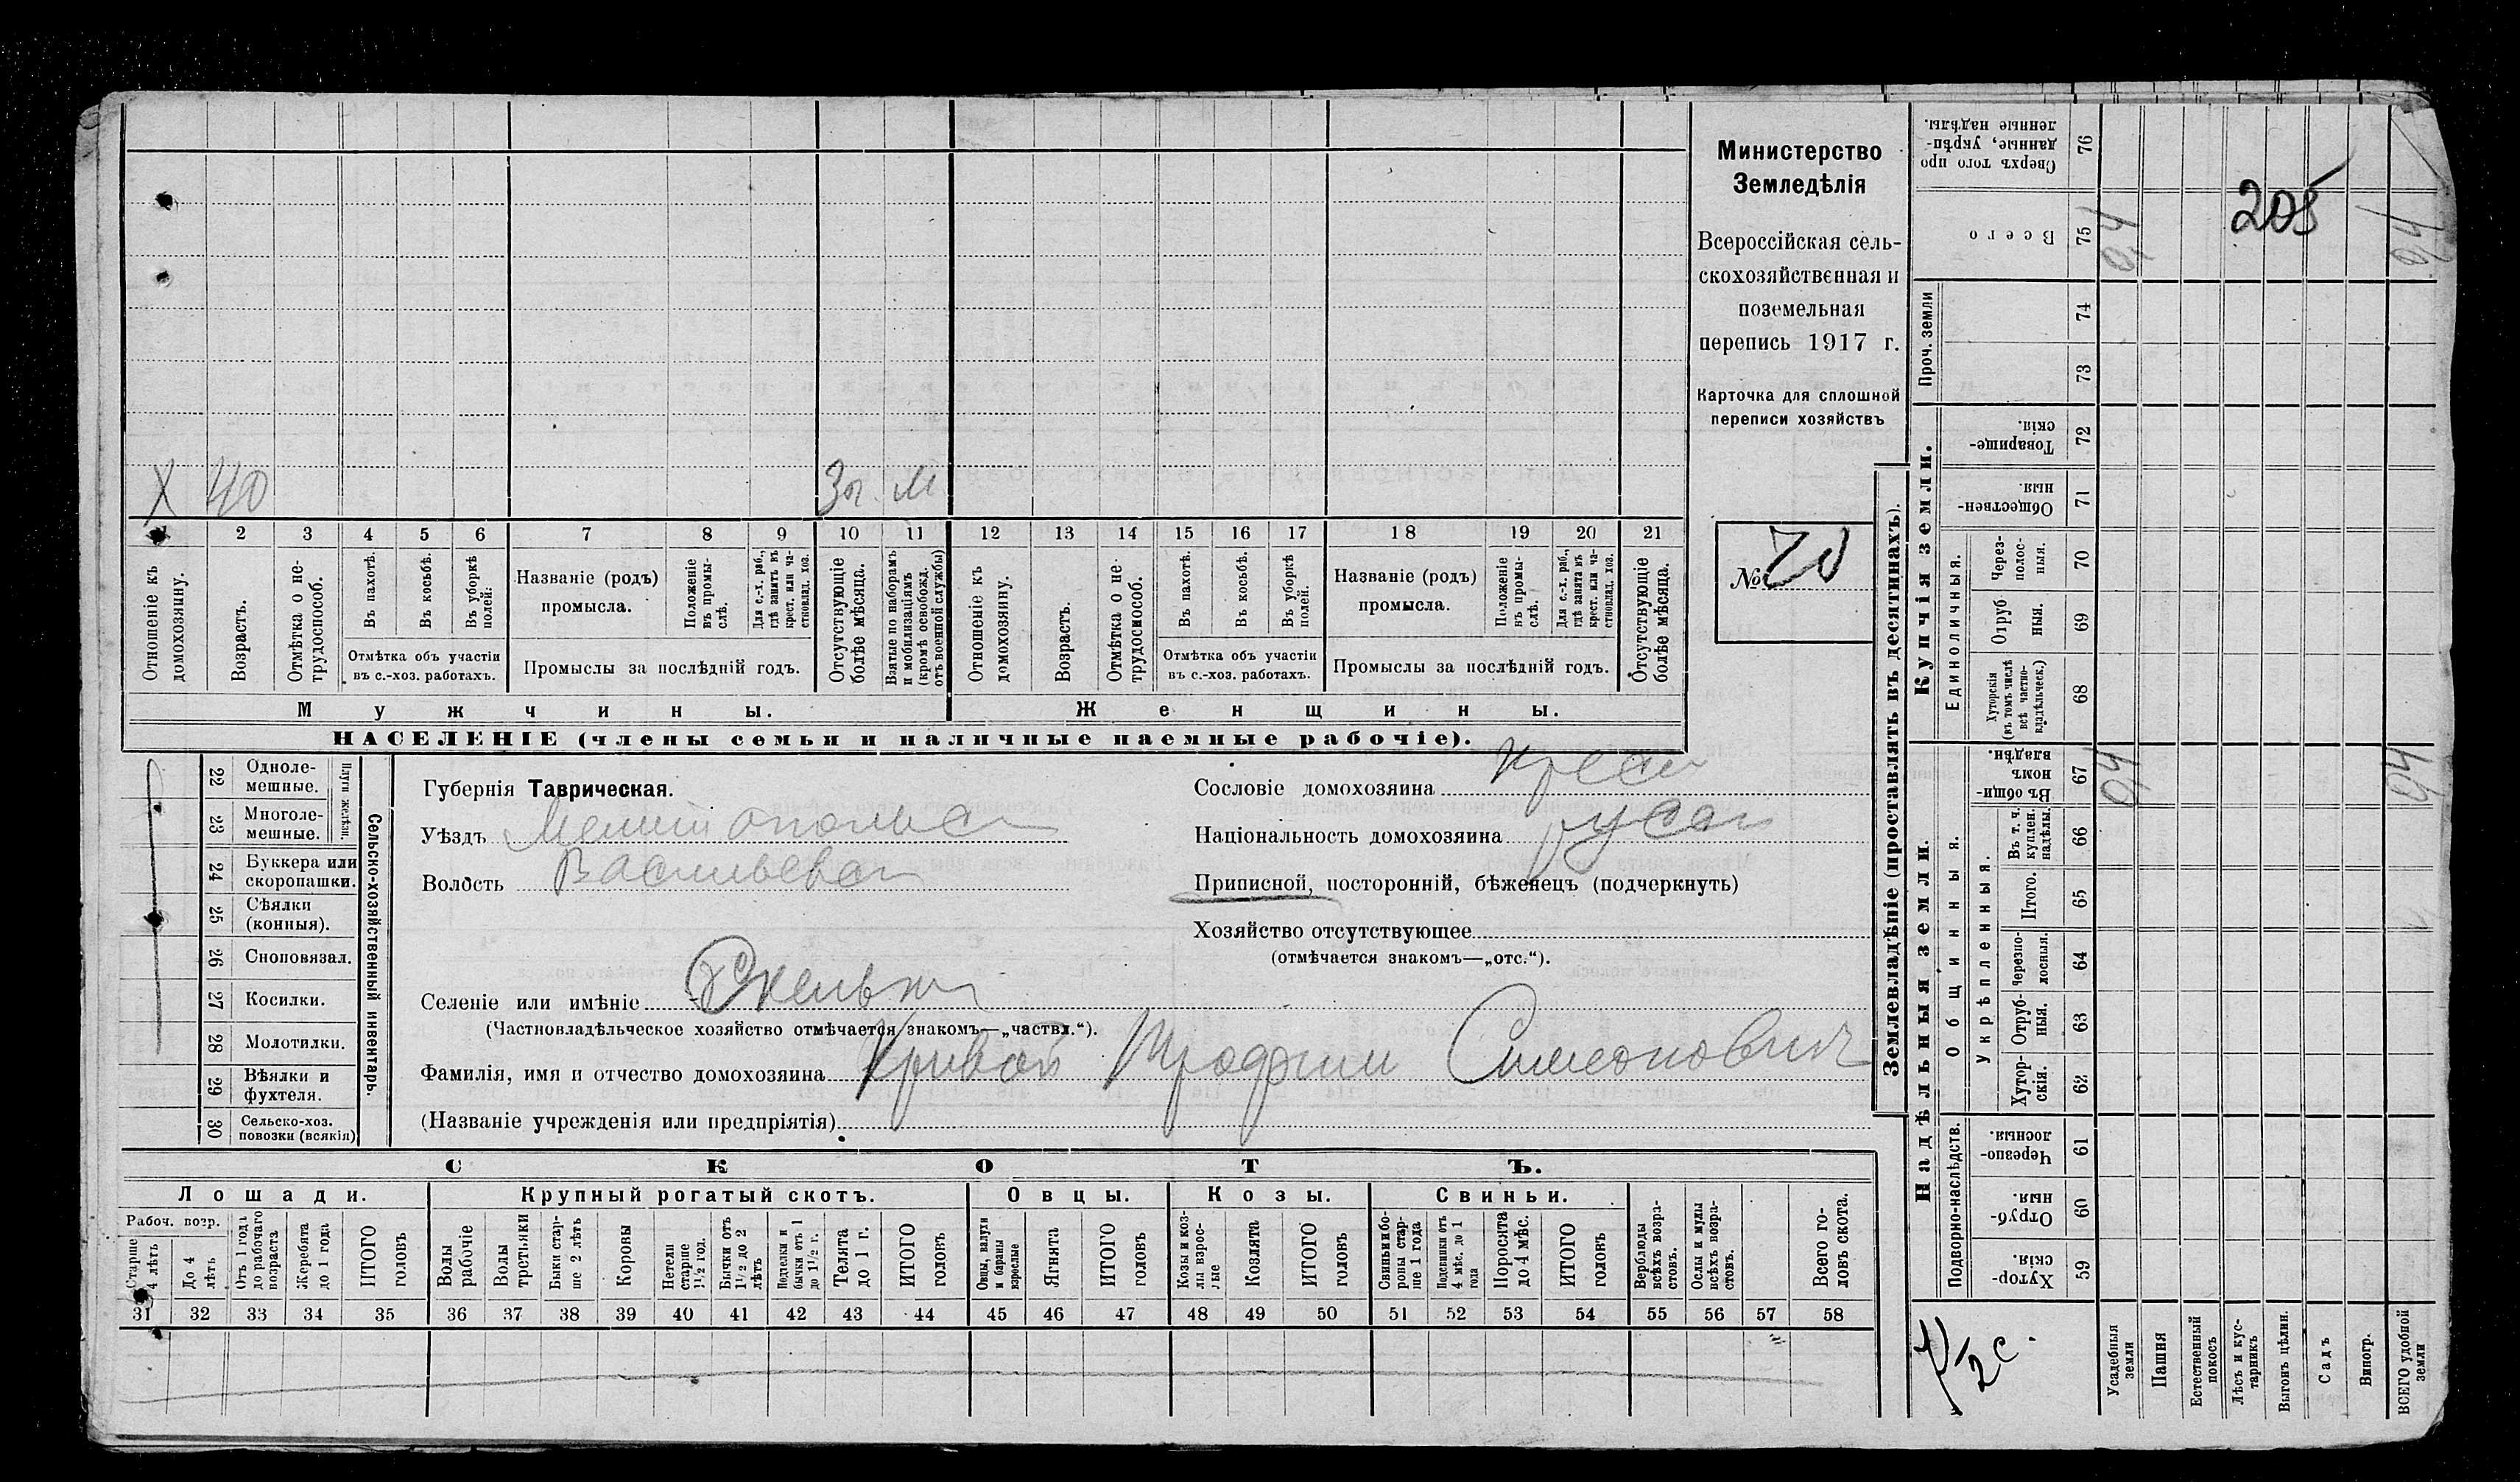 Министерство
Земледѣлія
Всероссійская сель-
скохозяйственная и
поземельная
перепись 1917 г.
Карточка для сплошной
переписи хозяйствъ
№ 70
205
Х 40 м
1 2 3 4 5 6 7 8 9 10 11 12 13 14 15 16 17 18 19 20 21
Отношеніе къ домохозяину.
Возрастъ.
Отмѣтка о не-трудоспособ.
Въ пахотѣ.
Въ косьбѣ.
Въ уборкѣ полей.
Отмѣтка объ участіи
въ с.-хоз. работахъ.
Названіе (родъ)
промысла.
Положеніе въ промы-слѣ.
Для с.-х. раб., гдѣ занятъ въ крест. или ча-стновлад. хоз.
Промыслы за послѣдній годъ.
Отсутствующіе болѣе мѣсяца.
Взятые по наборамъ и мобилизаціямъ (кромѣ освобожд. отъ военной службы)
Отношеніе къ домохозяину.
Возрастъ.
Отмѣтка о не-трудоспособ.
Въ пахотѣ.
Въ косьбѣ.
Въ уборкѣ полей.
Отмѣтка объ участіи
въ с.-хоз. работахъ.
Названіе (родъ)
промысла.
Положеніе въ промы-слѣ.
Для с.-х. раб., гдѣ занята въ крест. или ча-стновлад. хоз.
Промыслы за послѣдній годъ.
Отсутствующіе болѣе мѣсяца.
Мужчины.
Женщины.
НАСЕЛЕНІЕ (члены семьи и наличные наемные рабочіе).
22 Одноле-мешные.
23 Многоле-мешные.
Плуги желѣзн.
24 Буккера или скоропашки.
25 Сѣялки (конныя).
26 Сноповязал.
27 Косилки.
28 Молотилки.
29 Вѣялки и фухтеля.
30 Сельско-хоз. повозки (всякія)
Сельско-хозяйственный инвентарь.
Губернія Таврическая.
Уѣздъ Мелитопольс
Волость Васильевс
Сословіе домохозяина крест
Національность домохозяина
Приписной, посторонній, бѣженецъ (подчеркнуть)
Хозяйство отсутствующее
(отмѣчается знакомъ—„отс.“).
Селеніе или имѣніе Скельки
(Частновладѣльческое хозяйство отмѣчается знакомъ—„частвл.“).
Фамилія, имя и отчество домохозяина Кривой Трофим Симеонович
(Названіе учрежденія или предпріятія)
СКОТЪ.
Лошади. Крупный рогатый скотъ. Овцы. Козы. Свиньи.
Рабоч. возр.
Старше 4 лѣтъ
До 4 лѣтъ
Отъ 1 года до рабочаго возраста
Жеребята до 1 года
ИТОГО головъ
Волы рабочіе
Волы третьяки
Быки стар-ше 2 лѣтъ
Коровы
Нетели старше 1½ год.
Бычки отъ 1½ до 2 лѣтъ
Подтелки и бычки отъ 1 до 1½ г.
Телята до 1 г.
ИТОГО головъ
Овцы, валухи и бараны взрослые
Ягнята
ИТОГО головъ
Козы и коз-лы взрос-лые
Козлята
ИТОГО головъ
Свиньи и бо-ровы стар-ше 1 года
Подсвинки отъ 4 мѣс. до 1 года
Поросята до 4 мѣс.
ИТОГО головъ
Верблюды всѣхъ возра-стовъ.
Ослы и мулы всѣхъ возра-стовъ.
Всего го-ловъ скота.
31 32 33 34 35 36 37 38 39 40 41 42 43 44 45 46 47 48 49 50 51 52 53 54 55 56 57 58
Землевладѣніе (проставлять въ десятинахъ).
Сверхъ того про данные, укрѣп-ленные надѣлы. 76
Всего 75
Проч. земли 74 73
Купчія земли.
Товарище-скія. 72
Обществен-ныя. 71
Единоличныя.
Через-полос-ныя. 70
Отруб ныя. 69
Хуторскія (въ томъ числѣ всѣ частно-владѣльческ.) 68
Надѣльныя земли.
Общинныя.
Въ общи номъ владѣн. 67
Укрѣпленныя.
Въ т. ч. куплен. надѣлы. 66
Итого. 65
Черезпо-лосныя. 64
Отруб-ныя. 63
Хутор-скія. 62
Подворно-наслѣдств.
Черезпо-лосныя. 61
Отруб-ныя. 60
Хутор-скія. 59
Усадебныя земли
Пашня
Естественный покосъ
Лѣсъ и кус-тарникъ
Выгонъ цѣлин.
Садъ
Виногр.
ВСЕГО удобной земли